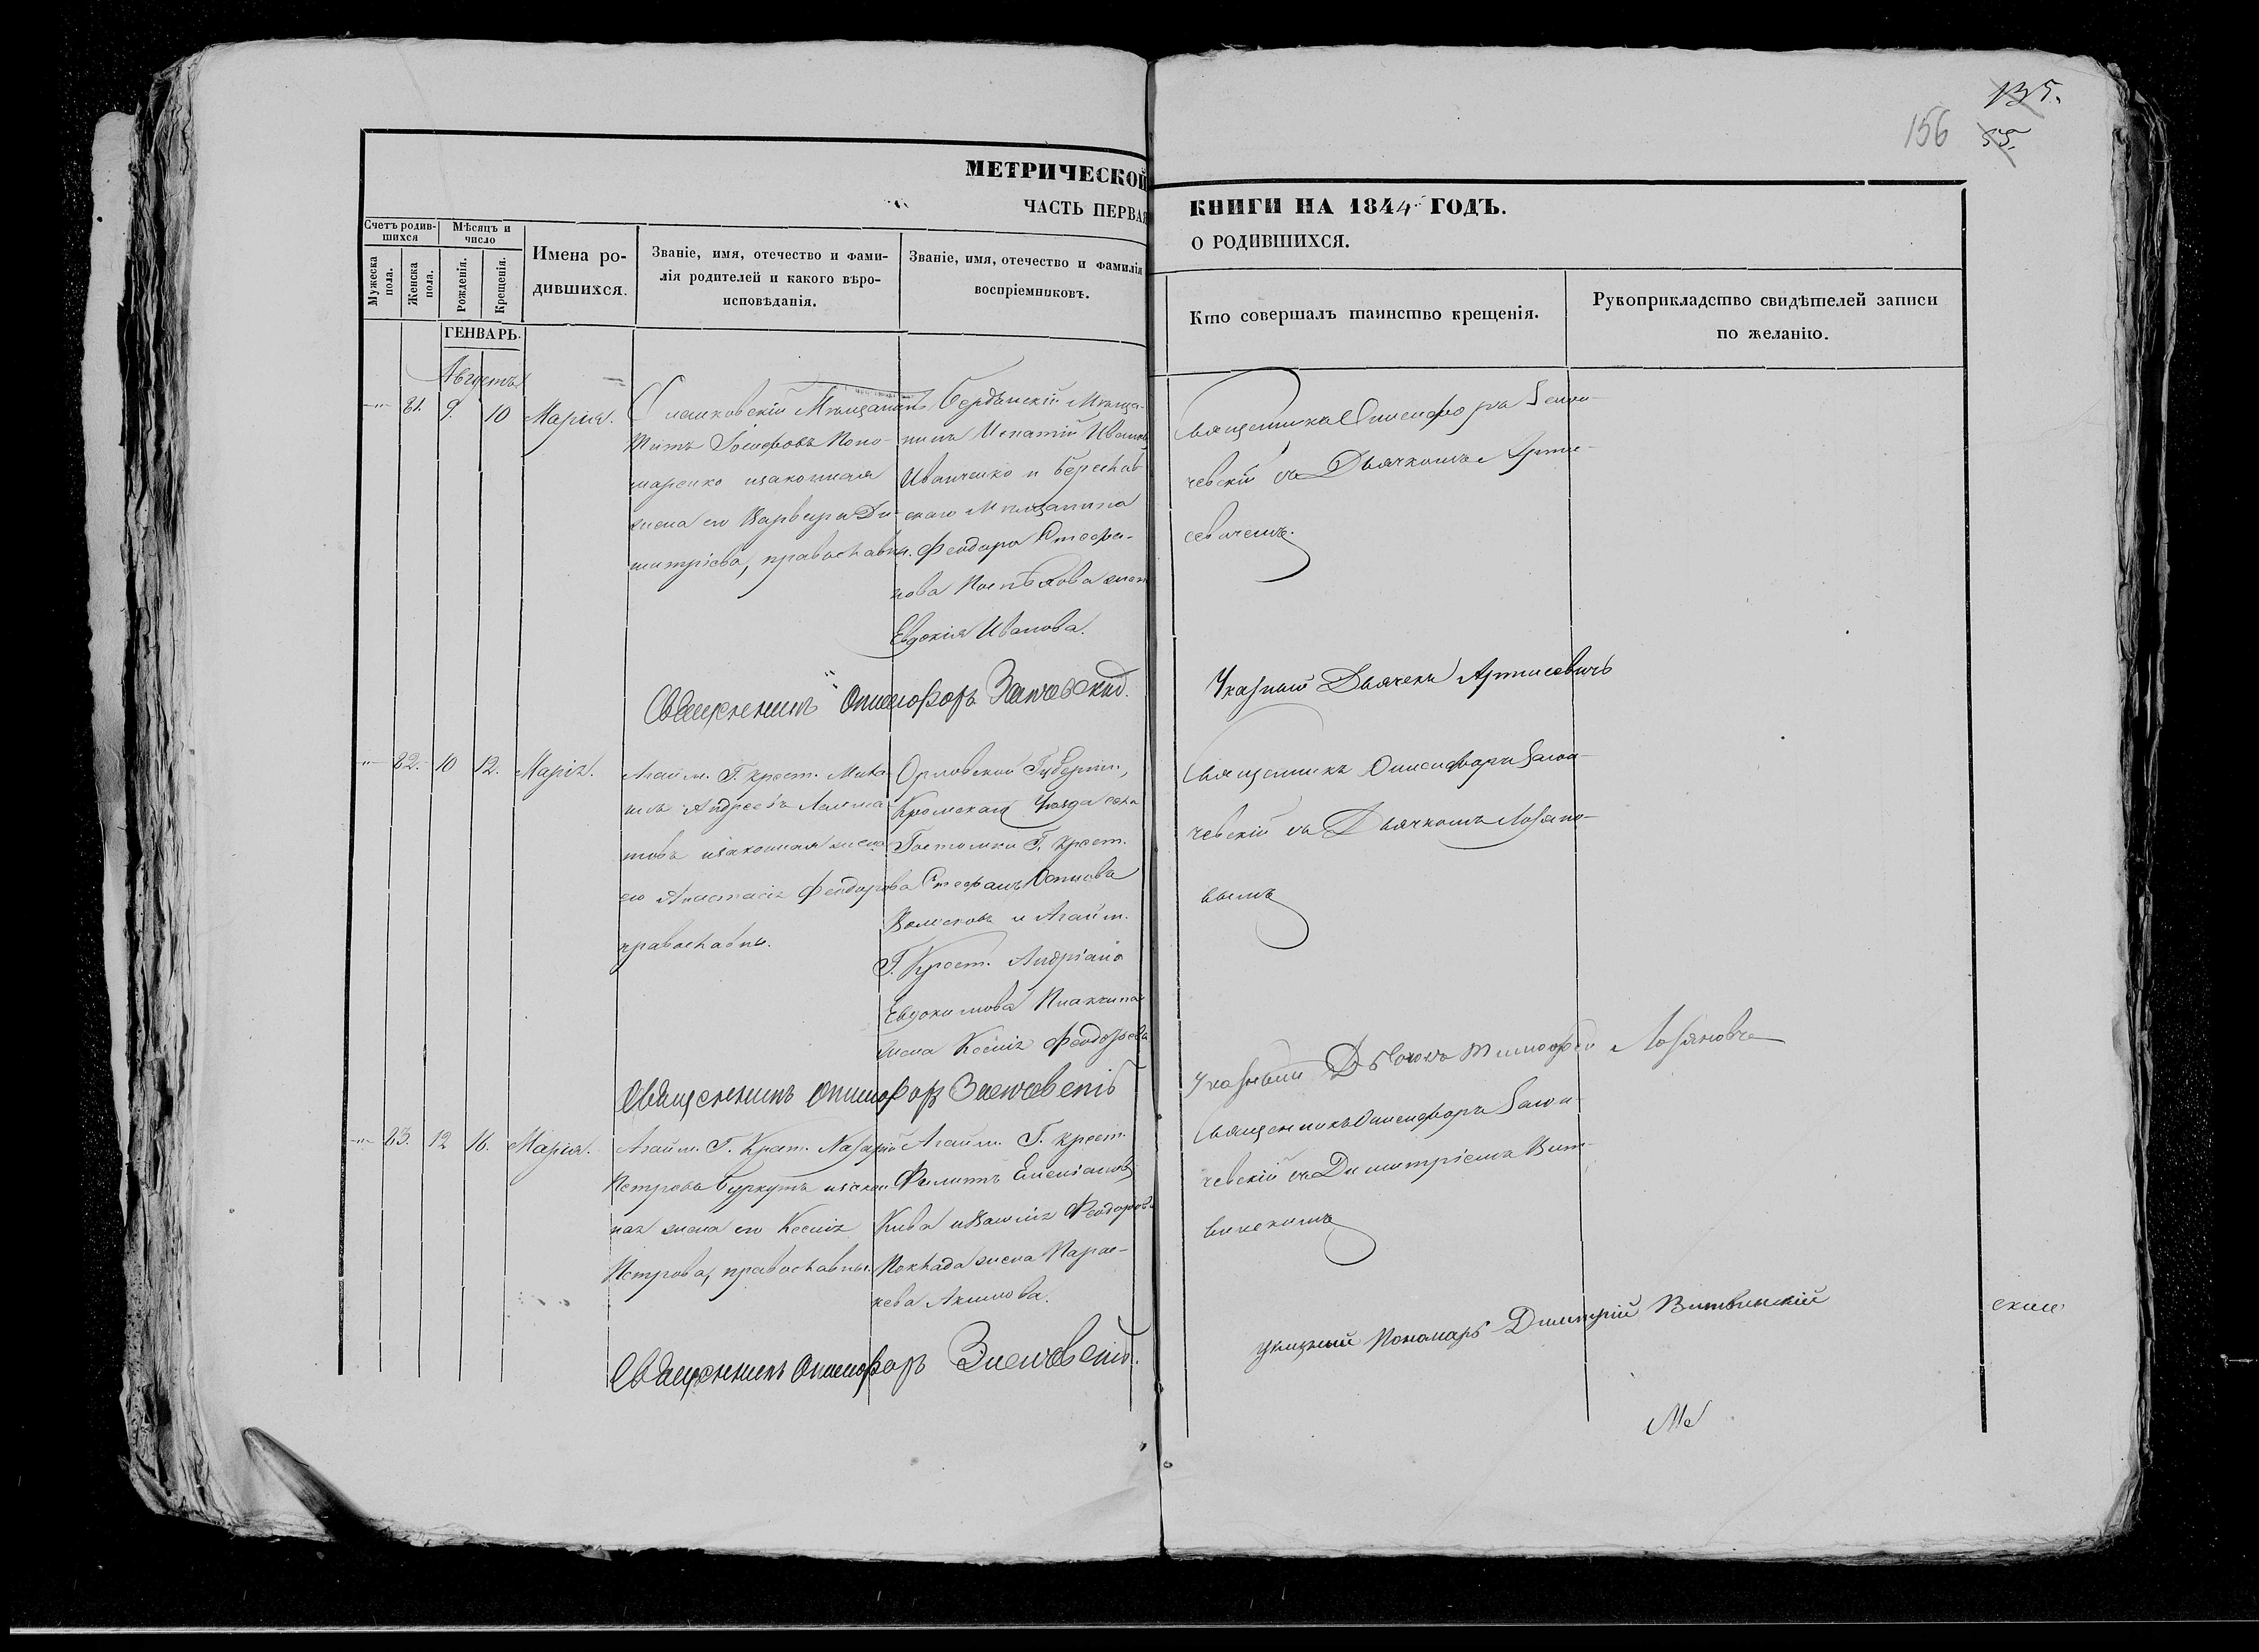 135.
156 55.
МЕТРИЧЕСКОЙ КНИГИ НА 1844 ГОДЪ.
ЧАСТЬ ПЕРВАЯ О РОДИВШИХСЯ.
Счетъ родив-
шихся
Мужеска
пола.
Женска
пола.
Мѣсяцъ и
число
Рожденія.
Крещенія.
Имена ро-
дившихся.
Званіе, имя, отечество и фами-
лія родителей и какого вѣро-
исповѣданія.
Званіе, имя, отечество и фамилія
воспріемниковъ.
Кто совершалъ таинство крещенія.
Рукоприкладство свидѣтелей записи
по желанію.
ГЕНВАРЬ.
Августъ
81. 9. 10 Марія.
Мѣщанинъ
Титъ Іосифовъ Поно-
маренко изаконная
жена его Варвара Ди-
митріева, православны.
Бердянскій Мѣща-
нинъ Игнатій Иванов
Иванченко и Берислав
скаго Мѣщанина
Феодора Стефа-
нова жена
Евдокія Иванова.
Священникъ Онисифоръ
чевскій съ Дьячкомъ Арти-
севичемъ.
Священникъ Онисифоръ
Указный Дьячекъ Артисевичь
82. 10 12. Марія.
Агайм. Г. Крест. Миха
илъ Андреевъ
товъ изаконная жена
его Анастасія Феодорова
православны.
Орловской Губерніи,
Кромскаго Уѣзда села
Гостомли Г. крест.
Стефанъ
и Агайм.
Г. Крест. Андріана
Евдокимова
жена Ксенія Феодорова
Священникъ Онисифоръ
чевскій съ Дьячкомъ Лозяно-
вымъ
Священникъ Онисифоръ
Указный Дьячокъ Тимофей Лозяновъ
83. 12 16. Марія.
Агайм. Г. Крест. Назарій
Петровъ Буркутъ изакон
ная жена его Ксенія
Петрова, православны.
Агайм. Г. крест.
Филиппъ Емеліановъ
Кива Феодорова
Поклада жена Парас-
кева Акимова.
Священникъ Онисифоръ
чевскій съ Димитріемъ Вит-
винскимъ
Священникъ Онисифоръ
указный Пономарь Димитрій Витвинскій